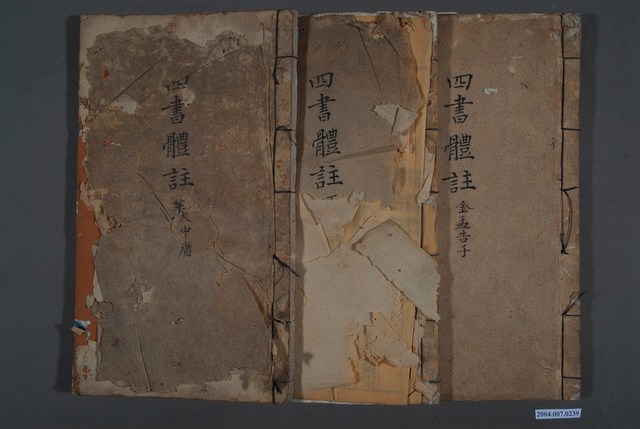 四書體註
中庸
四書體註
四書體註
金 孟告子
2004.007.0239